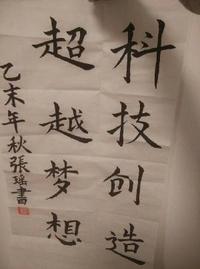 科技创造
超越梦想
乙未年秋張瑶書